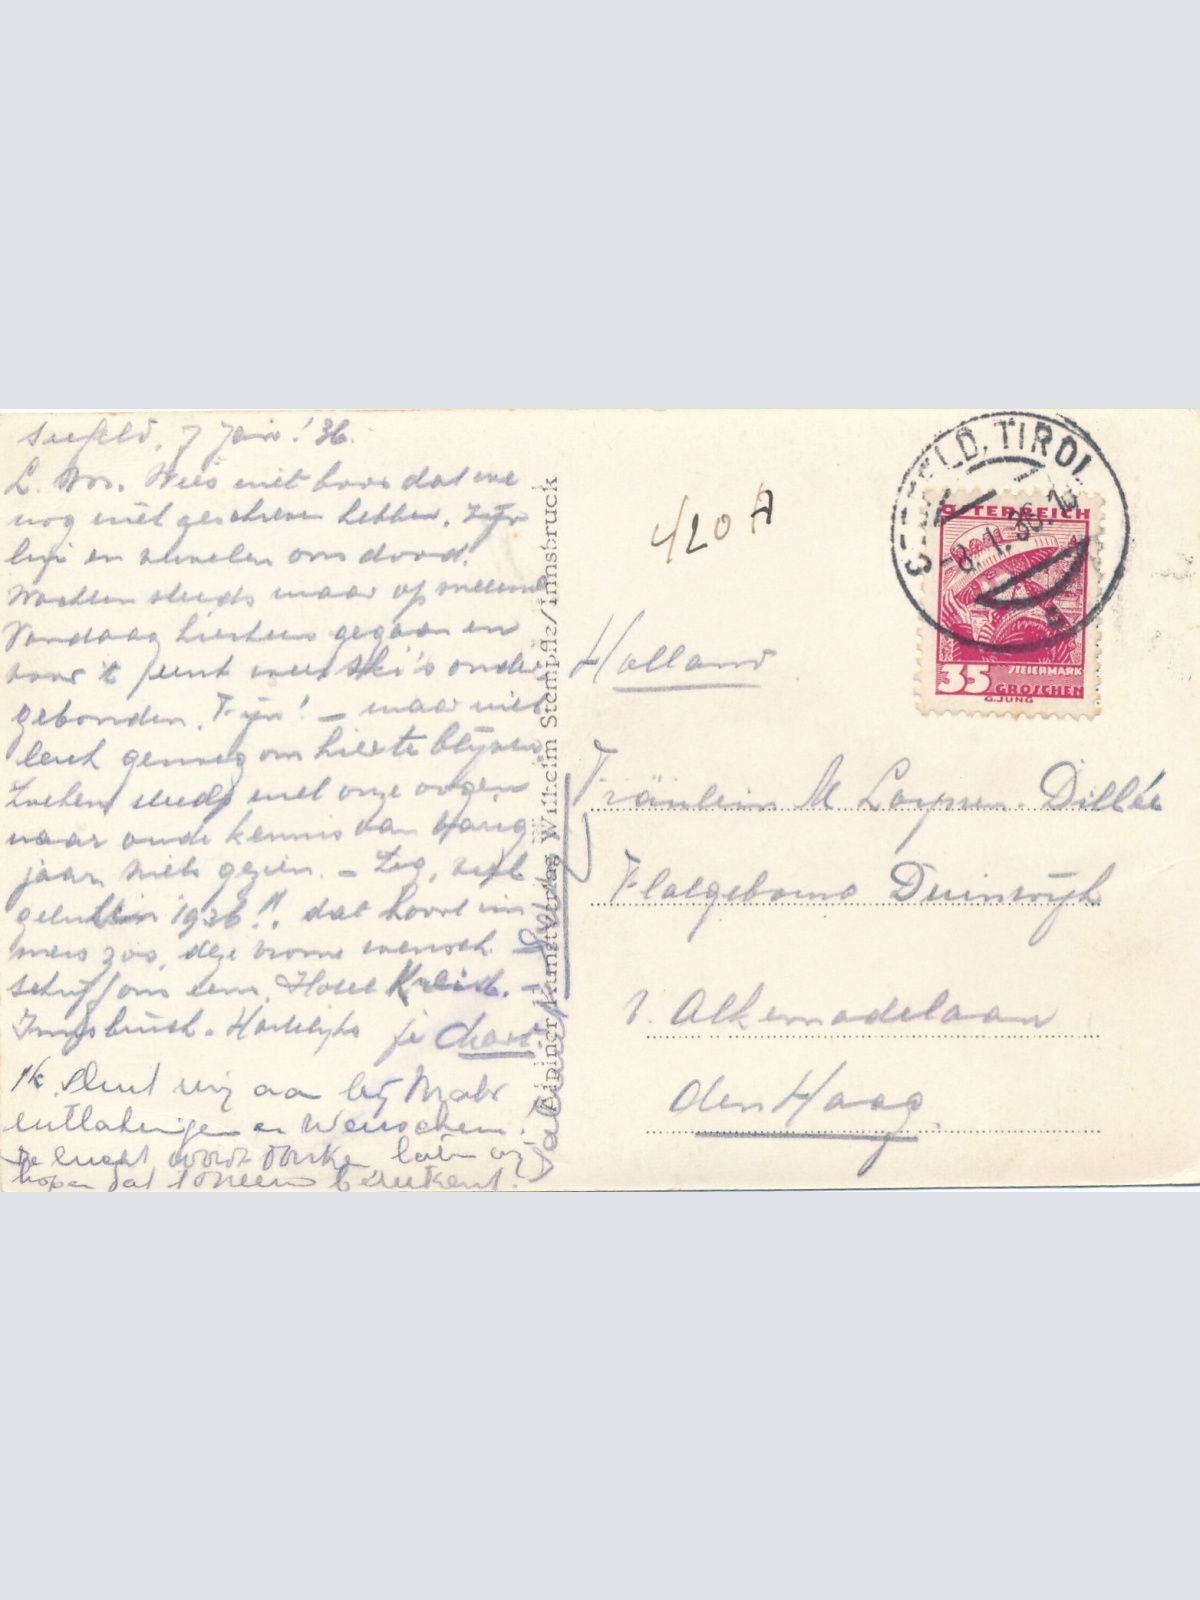 Seefeld, 7 Jan. '36.
L. M. Wees niet boos dat we
nog niet geschreven hebben.
lui en om dood.
Wachten steeds maar op sneeuw
Vandaag hierheen gegaan en
voor 't eerst weer ski's onder
gebonden. Fijn! – maar niet
leuk genoeg om hier te blijven
Zoeken steeds met onze oogen
naar oude kennis van vorig
jaar, niets gezien. – Zeg, veel
geluk in 1936!! dat hoort im
mers zoo, deze vrome wensch
Schrijf ons eens, Hotel Kreid. –
Innsbruck. Hartelijks je
Ik sluit mij aan bij
uitlatingen en Wenschen.
De lucht wordt donker laten wij
hopen dat 't sneeuw beteekent.
Alpiner Kunstverlag Wilhelm Stempfle/Innsbruck
420 A
SEEFELD, TIROL
-8.1.36
ÖSTERREICH
STEIERMARK
35 GROSCHEN
G. JUNG
Holland
Fräulein M Loyssen. Dillée
Flatgebouw Duinwyk
v. Alkemadelaan
den Haag.